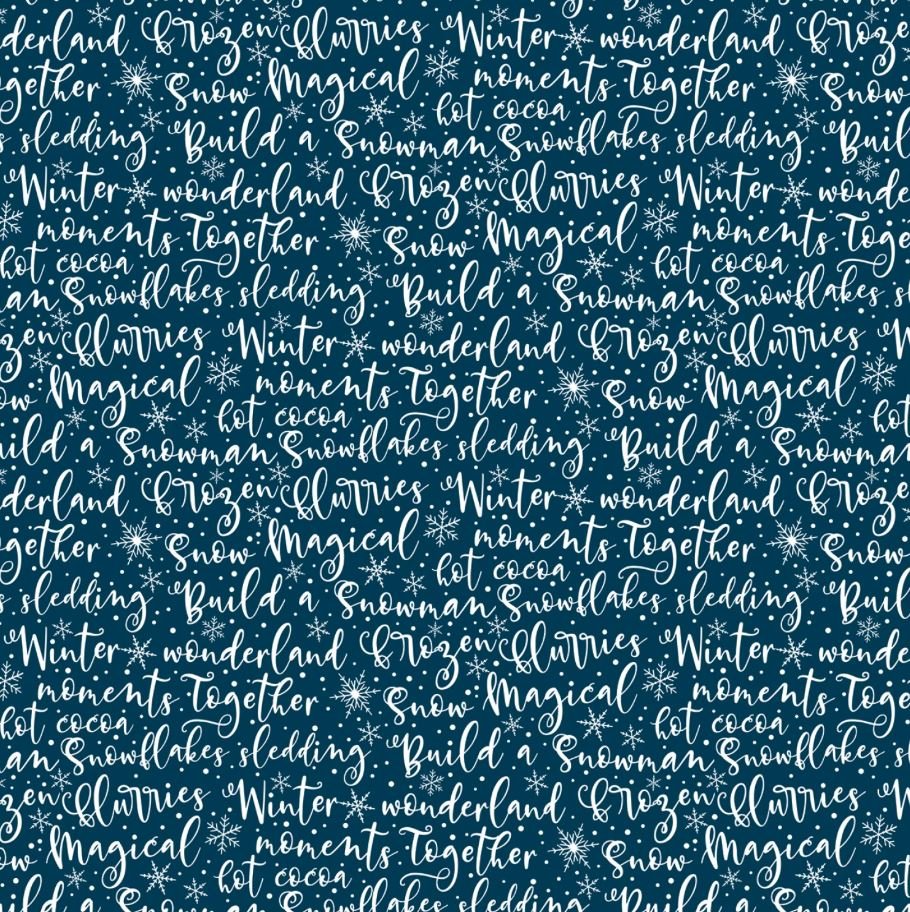 derland Frozen flurries Winter wonderland Froze
gether Snow Magical moments Together Snow
hot cocoa
s sledding Build a Snowman Snowflakes sledding Buil
Winter wonderland Frozen flurries Winter wonde
moments Together Snow Magical moments Toge
hot cocoa hot cocoa
an Snowflakes sledding Build a Snowman Snowflakes sl
zen flurries Winter wonderland Frozen flurries W
ow Magical moments Together Snow Magical
hot cocoa hot
uild a Snowman Snowflakes sledding Build a Snowman
derland Frozen flurries Winter wonderland Froze
gether Snow Magical moments Together Snow
hot cocoa
s sledding Build a Snowman Snowflakes sledding Buil
Winter wonderland Frozen flurries Winter wonde
moments Together Snow Magical moments Toge
hot cocoa hot cocoa
an Snowflakes sledding Build a Snowman Snowflakes sl
zen flurries Winter wonderland Frozen flurries W
ow Magical moments Together Snow Magical
hot cocoa hot
uild a Snowman Snowflakes sledding Build a Snowman